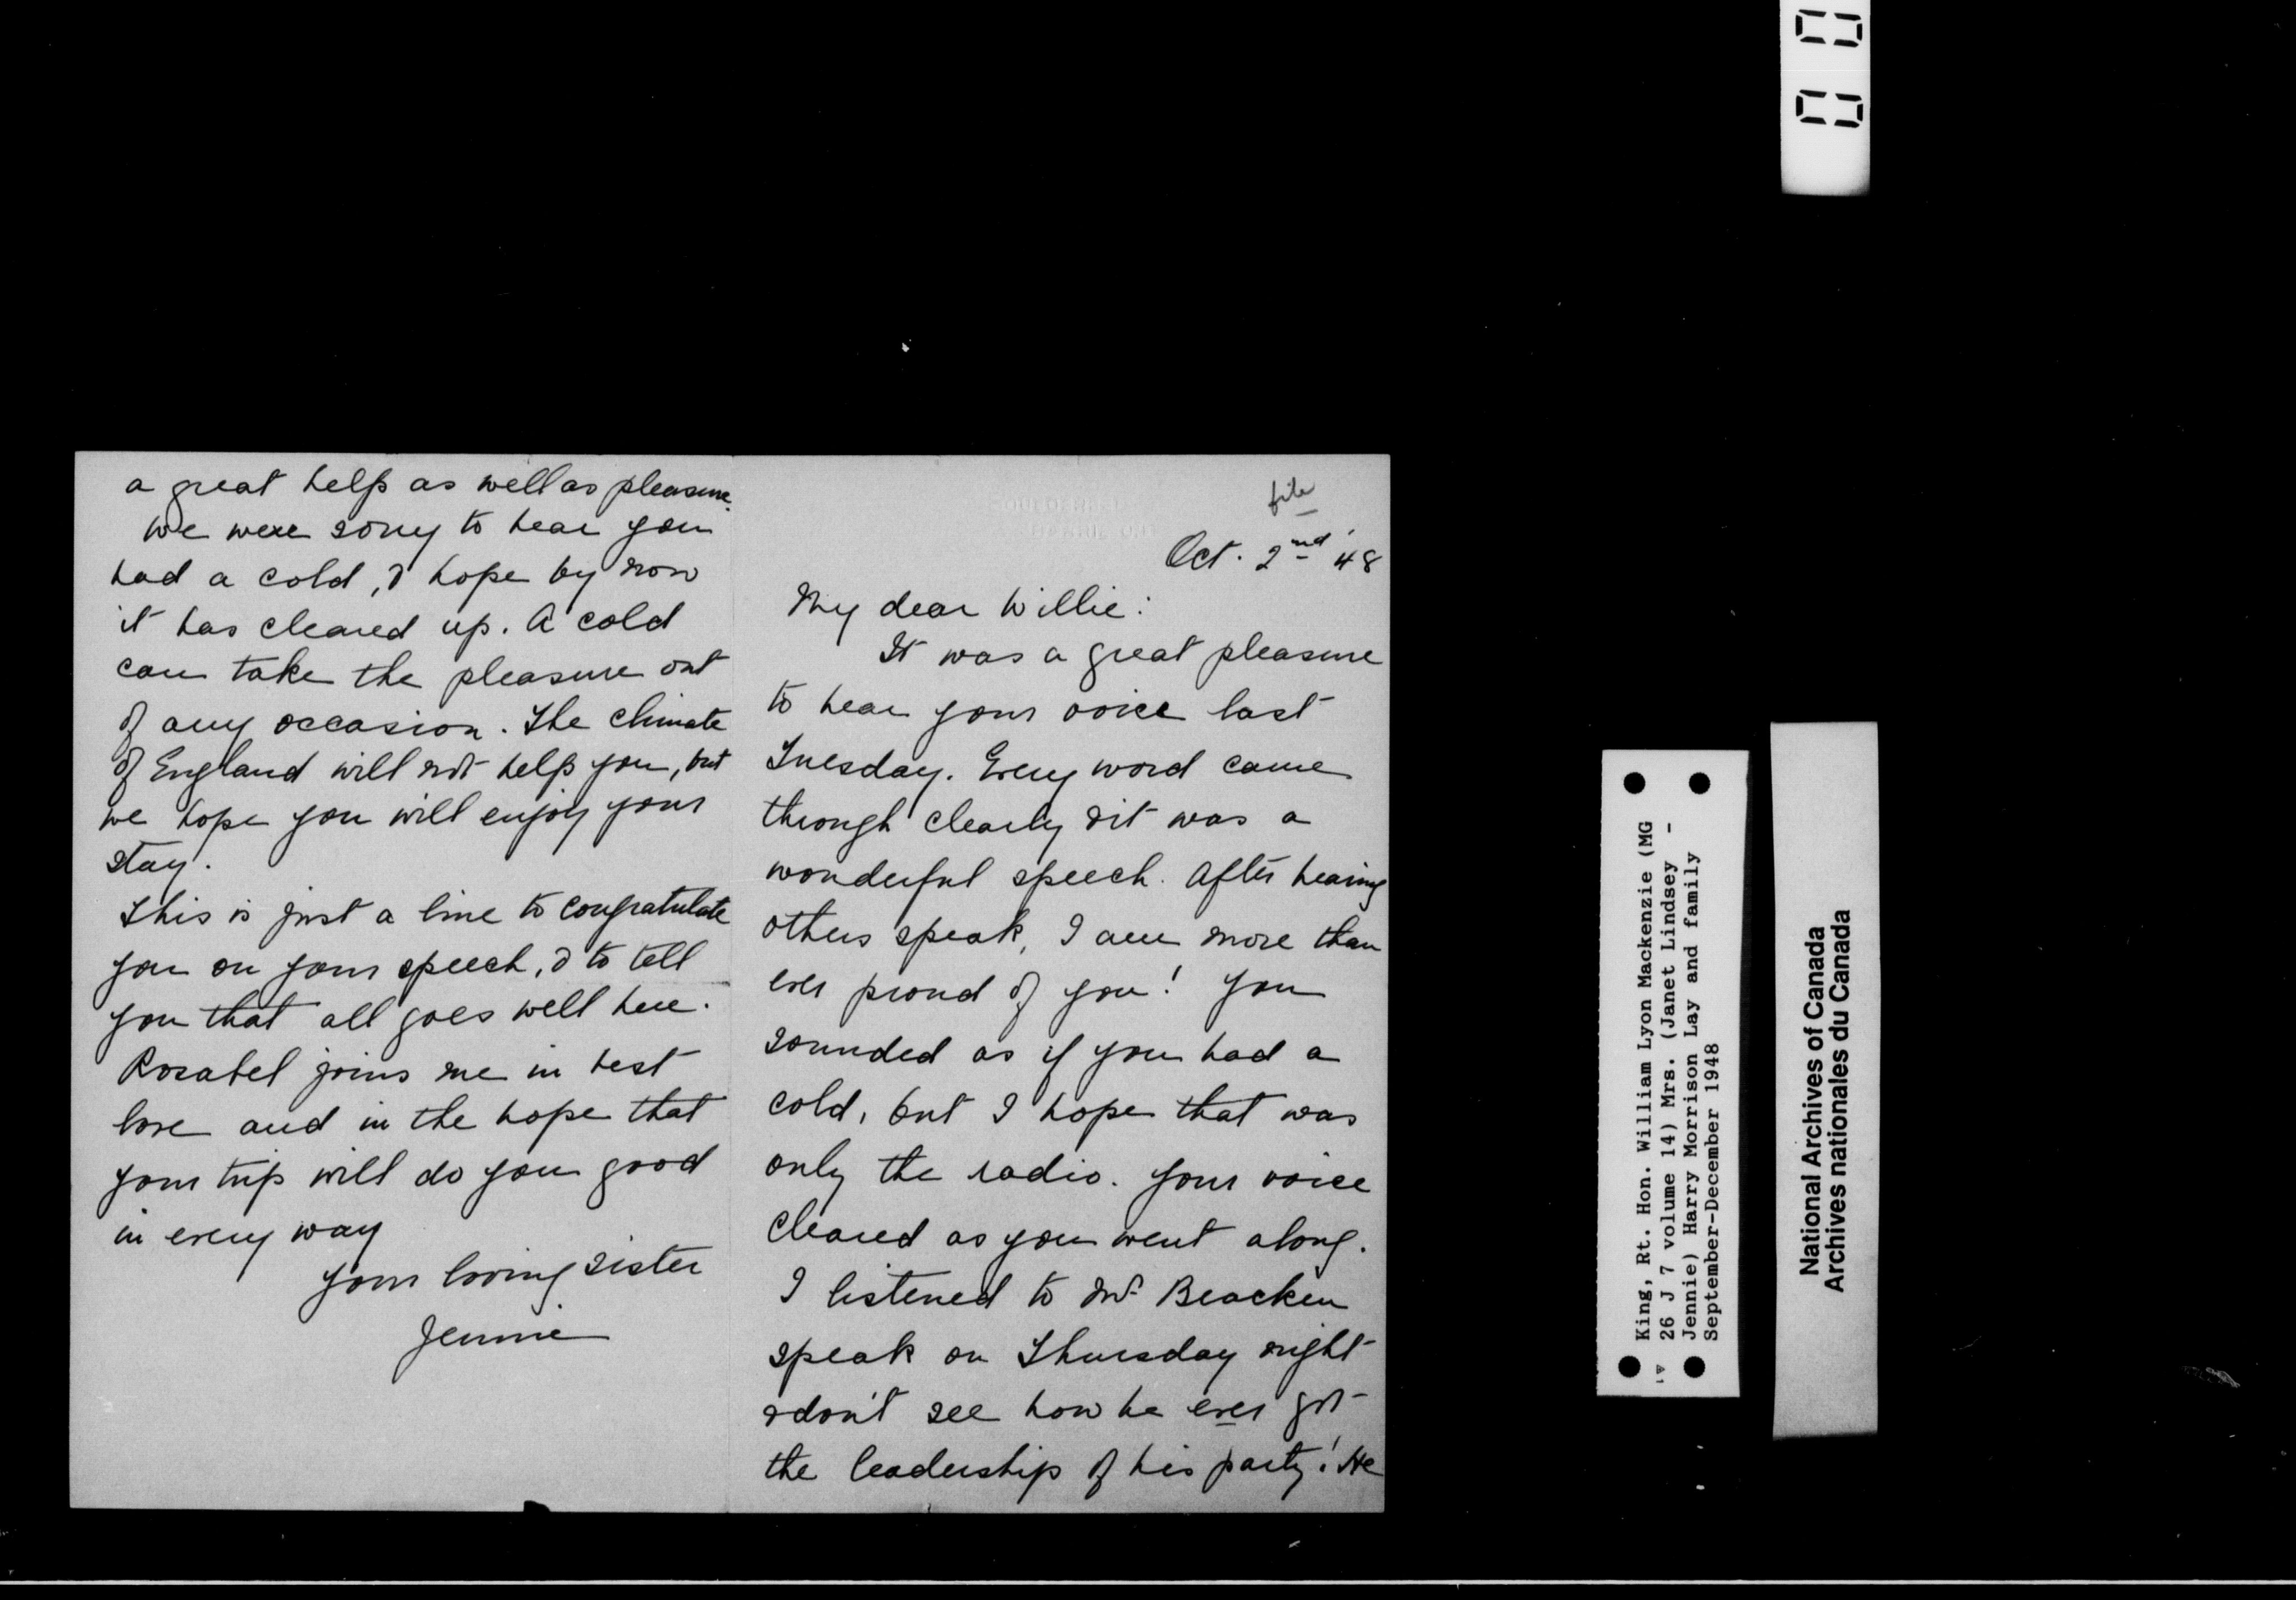 file
Oct. 2nd '48
My dear Willie:
It was a great pleasure
to hear your voice last
Tuesday. Every word came
through clearly & it was a
wonderful speech. After hearing
others speak, I am more than
ever proud of you! You
sounded as if you had a
cold, but I hope that was
only the radio. Your voice
cleared as you went along.
I listened to Mr Bracken
speak on Thursday night
& don't see how he ever got
the leadership of his party! He
a great help as well as pleasure.
We were sorry to hear you
had a cold, & hope by now
it has cleared up. A cold
can take the pleasure out
of any occasion. The climate
of England will not help you, but
we hope you will enjoy your
stay.
This is just a line to congratulate
you on your speech, & to tell
you that all goes well here.
Rosabel joins me in best
love and in the hope that
your trip will do you good
in every way
Your loving sister
Jennie
King, Rt. Hon. William Lyon Mackenzie (MG
26 J 7 volume 14) Mrs. (Janet Lindsey -
Jennie) Harry Morrison Lay and family
September-December 1948
National Archives of Canada
Archives nationales du Canada